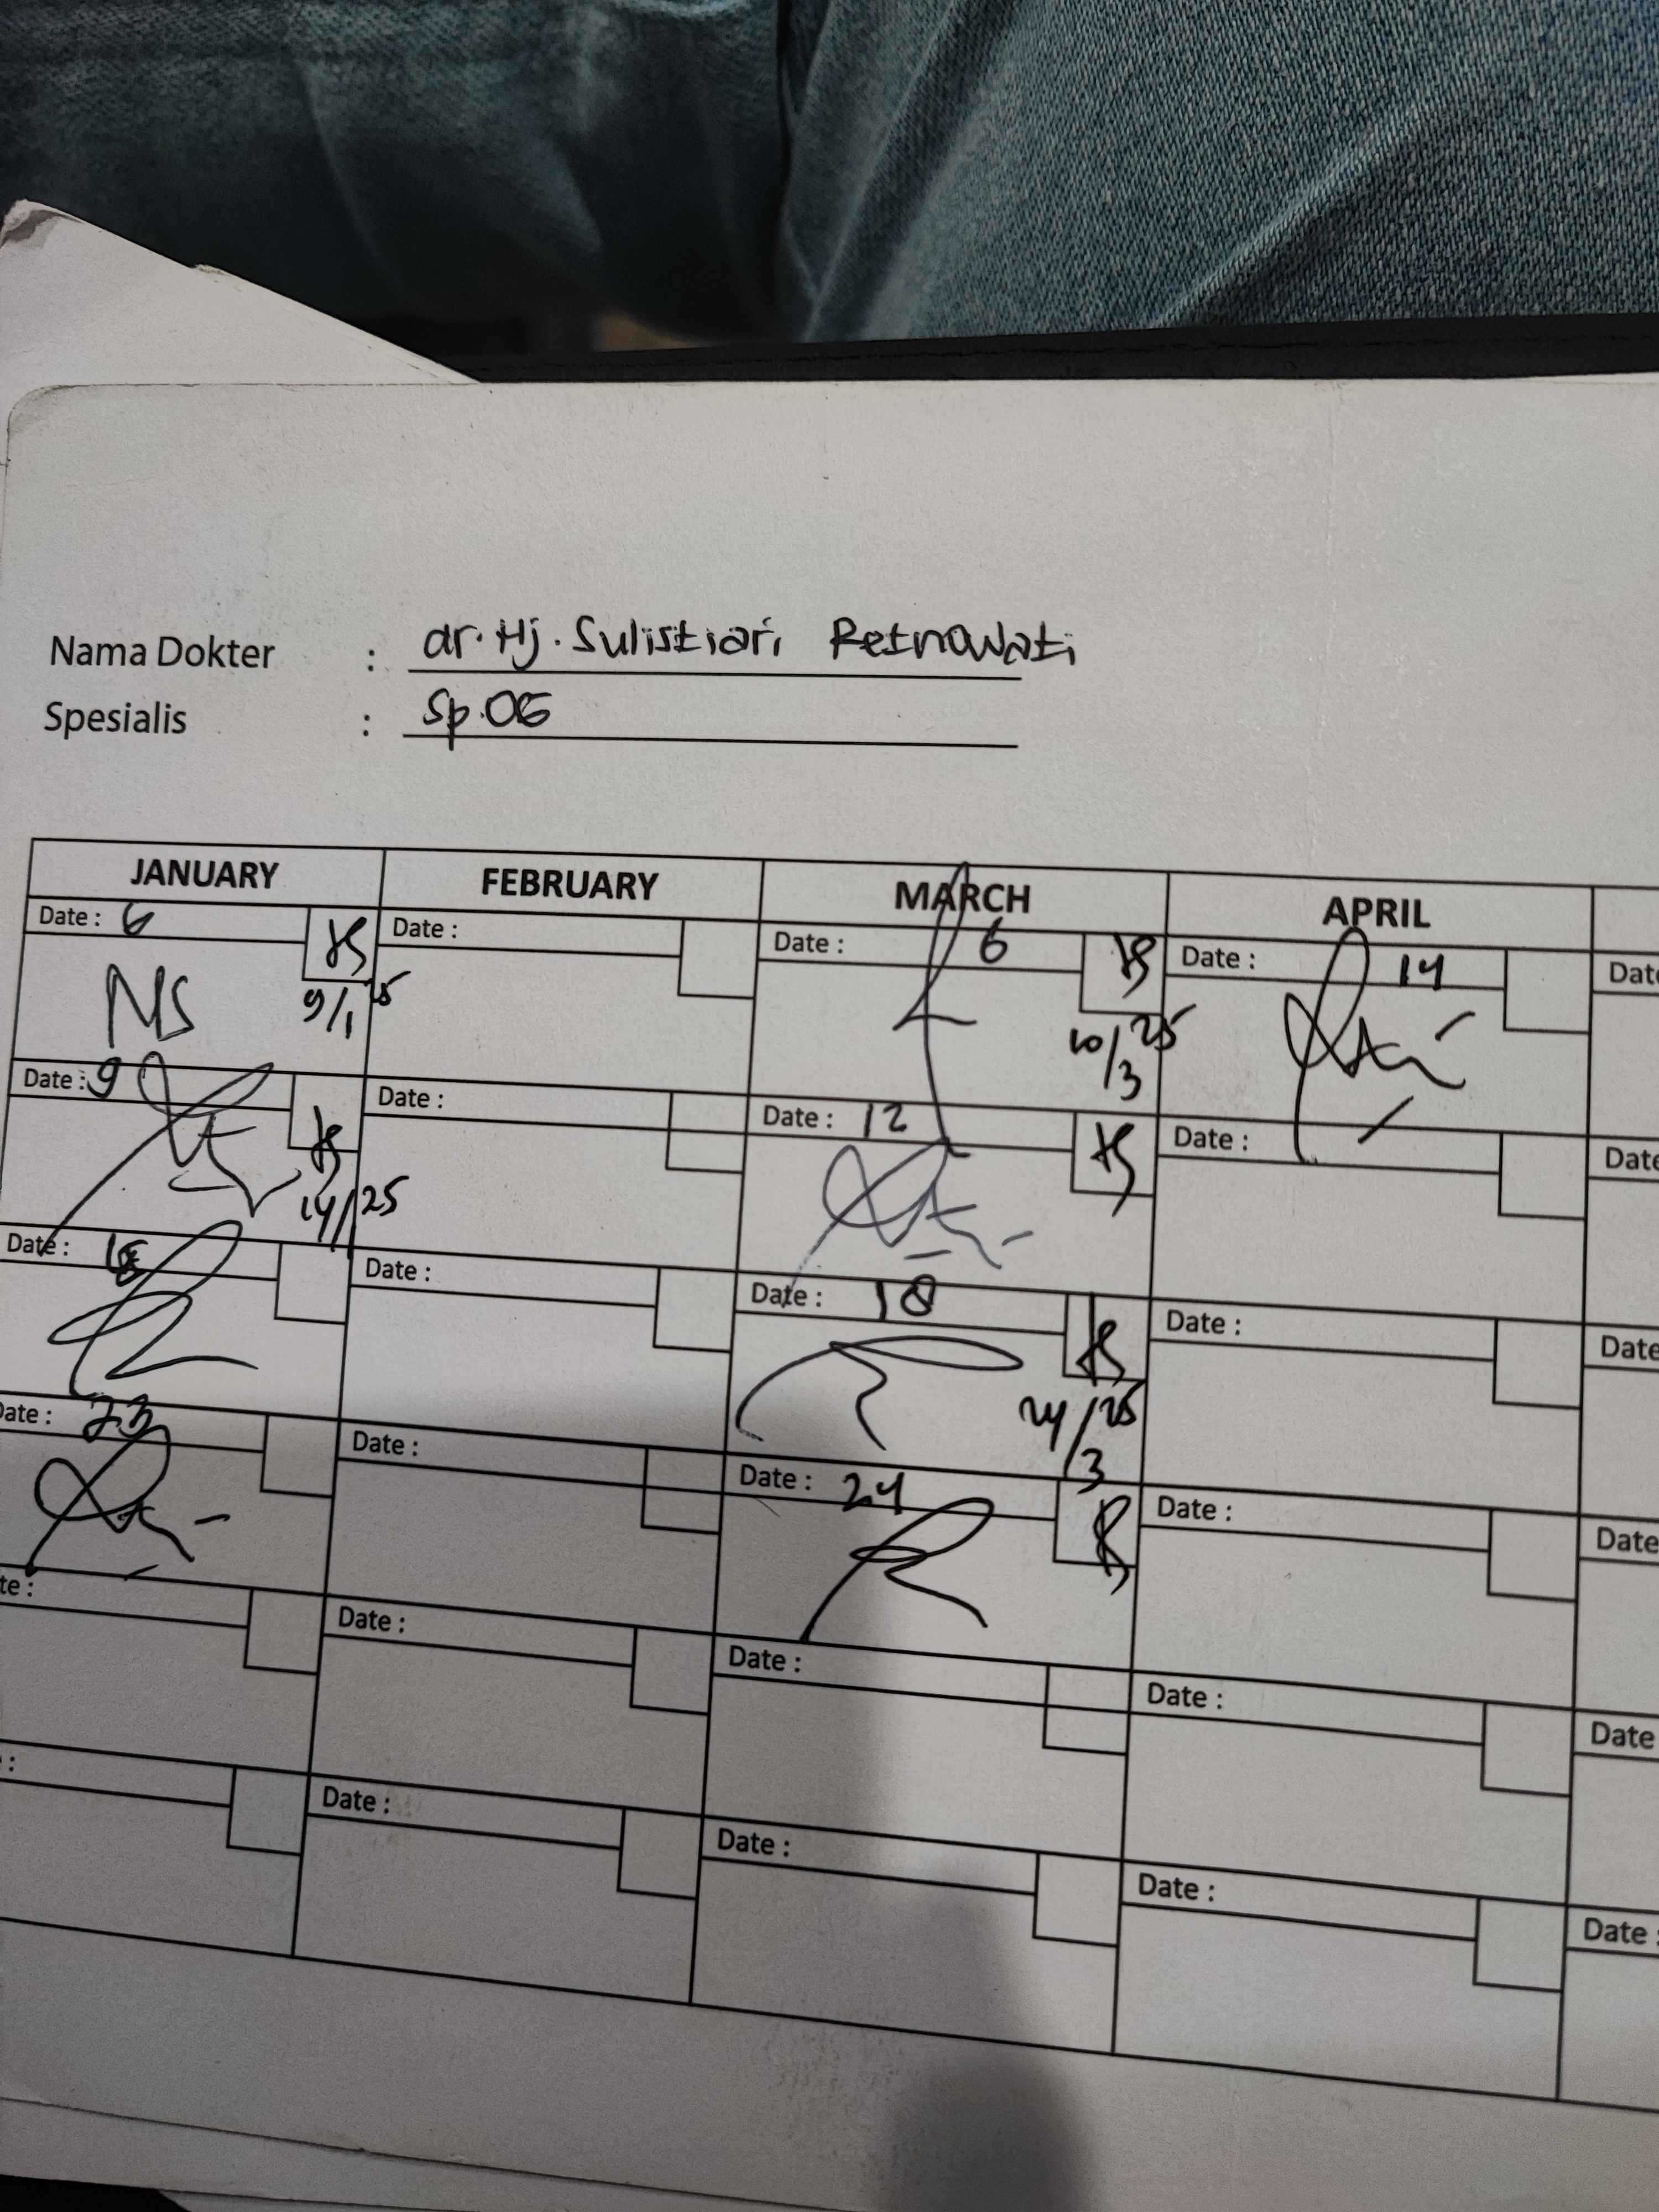 Nama Dokter : dr. Hj. Sulistiari Retnowati
Spesialis : Sp.OG
JANUARY FEBRUARY MARCH APRIL
Date : 6 Date : Date : 6 Date : 14 Date
NS 9/1 25 10/3 25
Date : 9 Date : Date : 12 Date : Date
14/ 25
Date : Date : Date : 18 Date : Date
24/3 25
Date : 23 Date : Date : 24 Date : Date
te : Date : Date : Date : Date
: Date : Date : Date : Date :